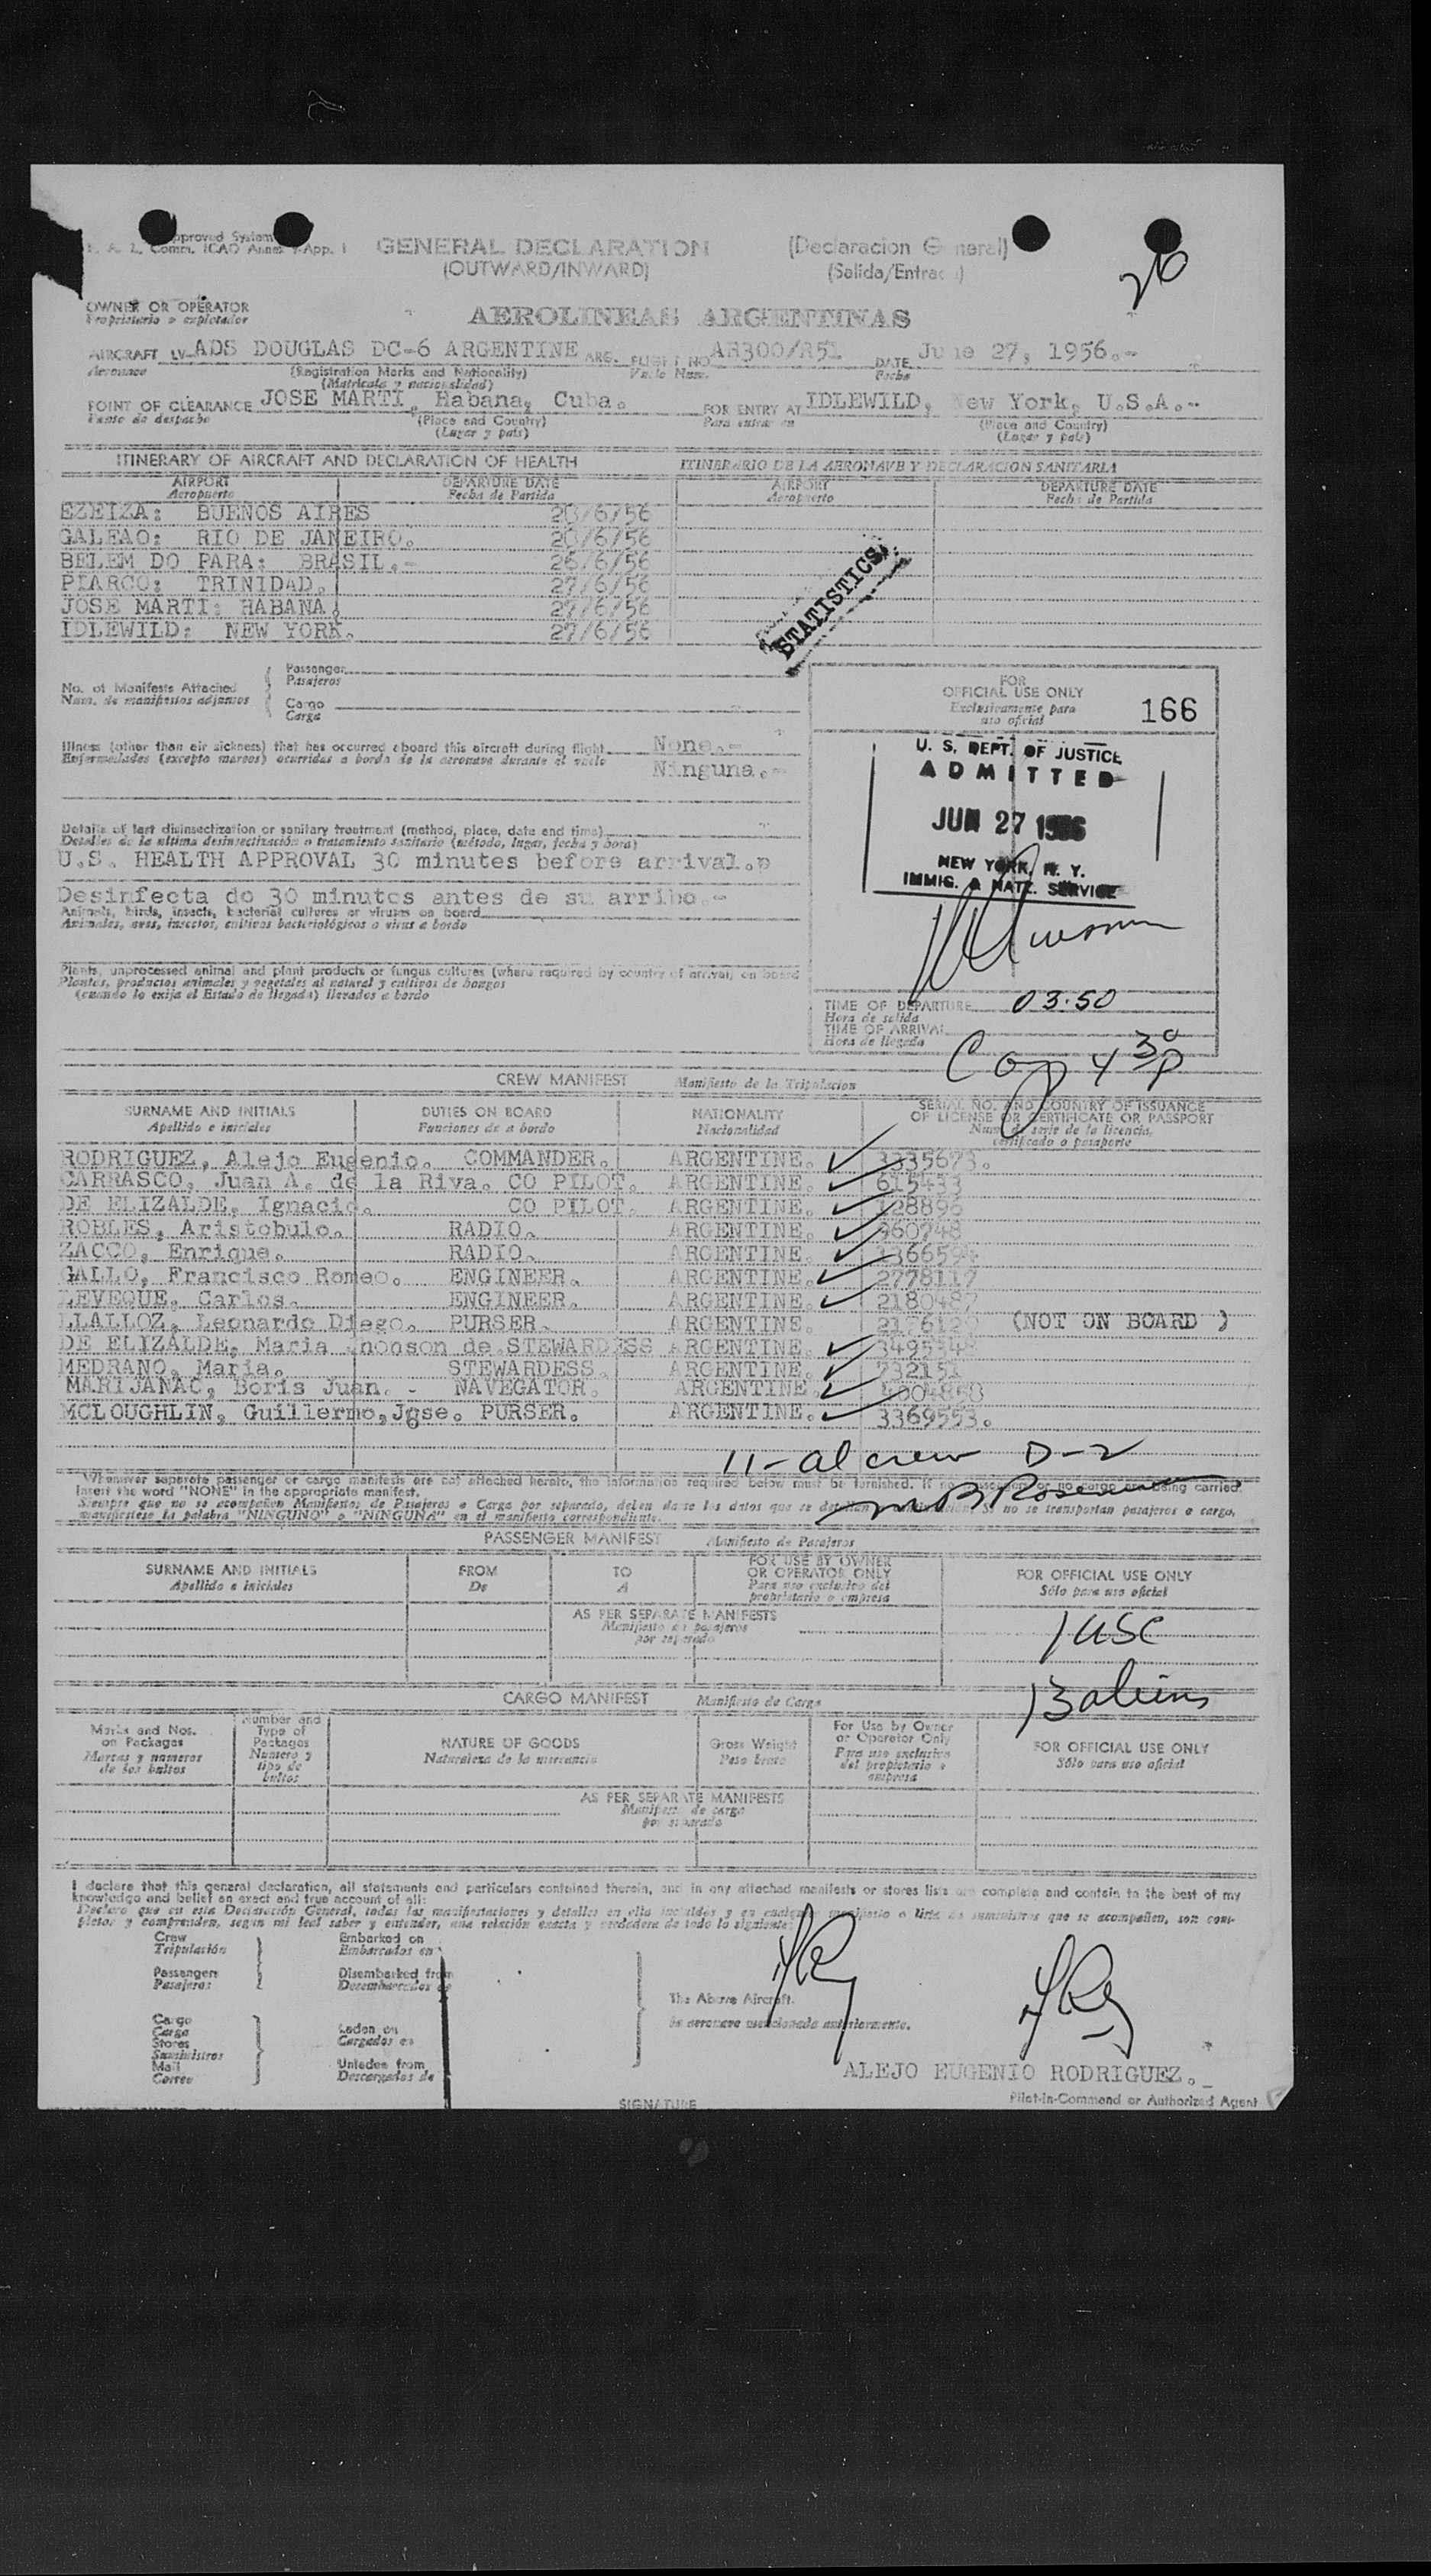 Approved System
F. A. L. Comm. ICAO Annex 9-App. I
GENERAL DECLARATION (Declaracion General)
(OUTWARD/INWARD) (Salida/Entrada)
26
OWNER OR OPERATOR
Propietario o explotador
AEROLINEAS ARGENTINAS
AIRCRAFT LV-ADS DOUGLAS DC-6 ARGENTINE ARG. FLIGHT NO AR300/851 DATE June 27, 1956.-
Aeronave (Registration Marks and Nationality) Vuelo Num. Fecha
(Matricula y nacionalidad)
POINT OF CLEARANCE JOSE MARTI, Habana, Cuba. FOR ENTRY AT IDLEWILD, New York, U.S.A.-
Punto de despacho (Place and Country) Para entrar en (Place and Country)
(Lugar y país) (Lugar y país)
ITINERARY OF AIRCRAFT AND DECLARATION OF HEALTH ITINERARIO DE LA AERONAVE Y DECLARACION SANITARIA
AIRPORT DEPARTURE DATE AIRPORT DEPARTURE DATE
Aeropuerto Fecha de Partida Aeropuerto Fecha de Partida
EZEIZA: BUENOS AIRES
GALEAO: RIO DE JANEIRO.
BELEM DO PARA: BRASIL.- 26/6/56
PIARCO: TRINIDAD. 27/6/56
JOSE MARTI: HABANA. 27/6/56
IDLEWILD: NEW YORK. 27/6/56
STATISTICS
No. of Manifests Attached Passenger
Num. de manifiestos adjuntos Pasajeros
Cargo
Carga
FOR
OFFICIAL USE ONLY
Exclusivamente para
uso oficial
166
Illness (other than air sickness) that has occurred aboard this aircraft during flight None.-
Enfermedades (excepto mareos) ocurridas a bordo de la aeronave durante el vuelo Ninguna.-
U. S. DEPT. OF JUSTICE
ADMITTED
JUN 27 1956
NEW YORK, N. Y.
IMMIG. & NATZ. SERVICE
Details of last disinsectization or sanitary treatment (method, place, date and time)
Detalles de la ultima desinsectización o tratamiento sanitario (método, lugar, fecha y hora)
U.S. HEALTH APPROVAL 30 minutes before arrival.p
Desinfecta do 30 minutos antes de su arribo.-
Animals, birds, insects, bacterial cultures or viruses on board
Animales, aves, insectos, cultivos bacteriológicos o virus a bordo
Plants, unprocessed animal and plant products or fungus cultures (where required by country of arrival) on board
Plantas, productos animales y vegetales al natural y cultivos de hongos
(cuando lo exija el Estado de llegada) llevados a bordo
TIME OF DEPARTURE 03.50
Hora de salida
TIME OF ARRIVAL
Hora de llegada
430p
CREW MANIFEST Manifiesto de la Tripulacion
SURNAME AND INITIALS DUTIES ON BOARD NATIONALITY SERIAL NO. AND COUNTRY OF ISSUANCE
Apellido e iniciales Funciones de a bordo Nacionalidad OF LICENSE OR CERTIFICATE OR PASSPORT
Num. de serie de la licencia,
certificado o pasaporte
RODRIGUEZ, Alejo Eugenio. COMMANDER. ARGENTINE. 3335673.
CARRASCO, Juan A. de la Riva. CO PILOT. ARGENTINE. 615433
DE ELIZALDE, Ignacio. CO PILOT. ARGENTINE.
ROBLES, Aristobulo. RADIO. ARGENTINE. 960748
ZACCO, Enrique. RADIO. ARGENTINE.
GALLO, Francisco Romeo. ENGINEER. ARGENTINE. 2778117
LEVEQUE, Carlos. ENGINEER. ARGENTINE. 2180487
LLALLOZ, Leonardo Diego. PURSER. ARGENTINE. (NOT ON BOARD )
DE ELIZALDE, Maria Jhonson de STEWARDESS ARGENTINE.
MEDRANO, Maria. STEWARDESS. ARGENTINE. 732151
MARIJANAC, Boris Juan. - NAVEGATOR. ARGENTINE. 4004858
MCLOUGHLIN, Guillermo,Jose. PURSER. ARGENTINE. 3369553.
11-al crew D-2
Whenever separate passenger or cargo manifests are not attached hereto, the information required below must be furnished. If no passengers or no cargo are being carried,
insert the word "NONE" in the appropriate manifest.
Siempre que no se acompañen Manifiestos de Pasajeros o Carga por separado, deben darse los datos que se detallan Si no se transportan pasajeros o carga,
manifiestese la palabra "NINGUNO" o "NINGUNA" en el manifiesto correspondiente.
PASSENGER MANIFEST Manifiesto de Pasajeros
SURNAME AND INITIALS FROM TO FOR USE BY OWNER OR OPERATOR ONLY FOR OFFICIAL USE ONLY
Apellido e iniciales De A Para uso exclusivo del propietario o empresa Sólo para uso oficial
AS PER SEPARATE MANIFESTS
Manifiesto de pasajeros
por separado
1 USC
13 aliens
CARGO MANIFEST Manifiesto de Carga
Marks and Nos. on Packages Number and Type of Packages NATURE OF GOODS Gross Weight For Use by Owner or Operator Only FOR OFFICIAL USE ONLY
Marcas y numeros de los bultos Numero y tipo de bultos Naturaleza de la mercancia Peso bruto Para uso exclusivo del propietario o empresa Sólo para uso oficial
AS PER SEPARATE MANIFESTS
Manifiesto de carga
por separado
I declare that this general declaration, all statements and particulars contained therein, and in any attached manifests or stores lists are complete and contain to the best of my
knowledge and belief an exact and true account of all:
Declaro que en esta Declaración General, todas las manifestaciones y detalles en ella incluidos y en cualquier manifiesto o lista de suministros que se acompañen, son com-
pletos y comprenden, segun mi leal saber y entender, una relación exacta y verdadera de todo lo siguiente:
Crew Embarked on
Tripulación Embarcados en
Passengers Disembarked from
Pasajeros Desembarcados de
The Above Aircraft.
la aeronave mencionada anteriormente.
Cargo Laden on
Carga Cargados en
Stores
Suministros
Mail Unladen from
Correo Descargados de
ALEJO EUGENIO RODRIGUEZ.
SIGNATURE Pilot-in-Command or Authorized Agent